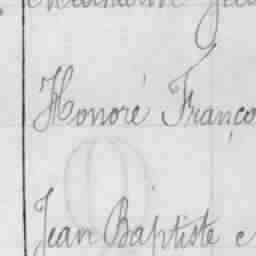 Honoré Franço
Jean Baptiste e